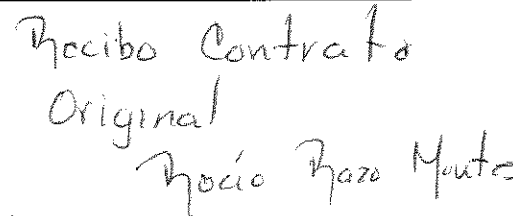 Recibo Contrato
Original
Rocío Razo Montes